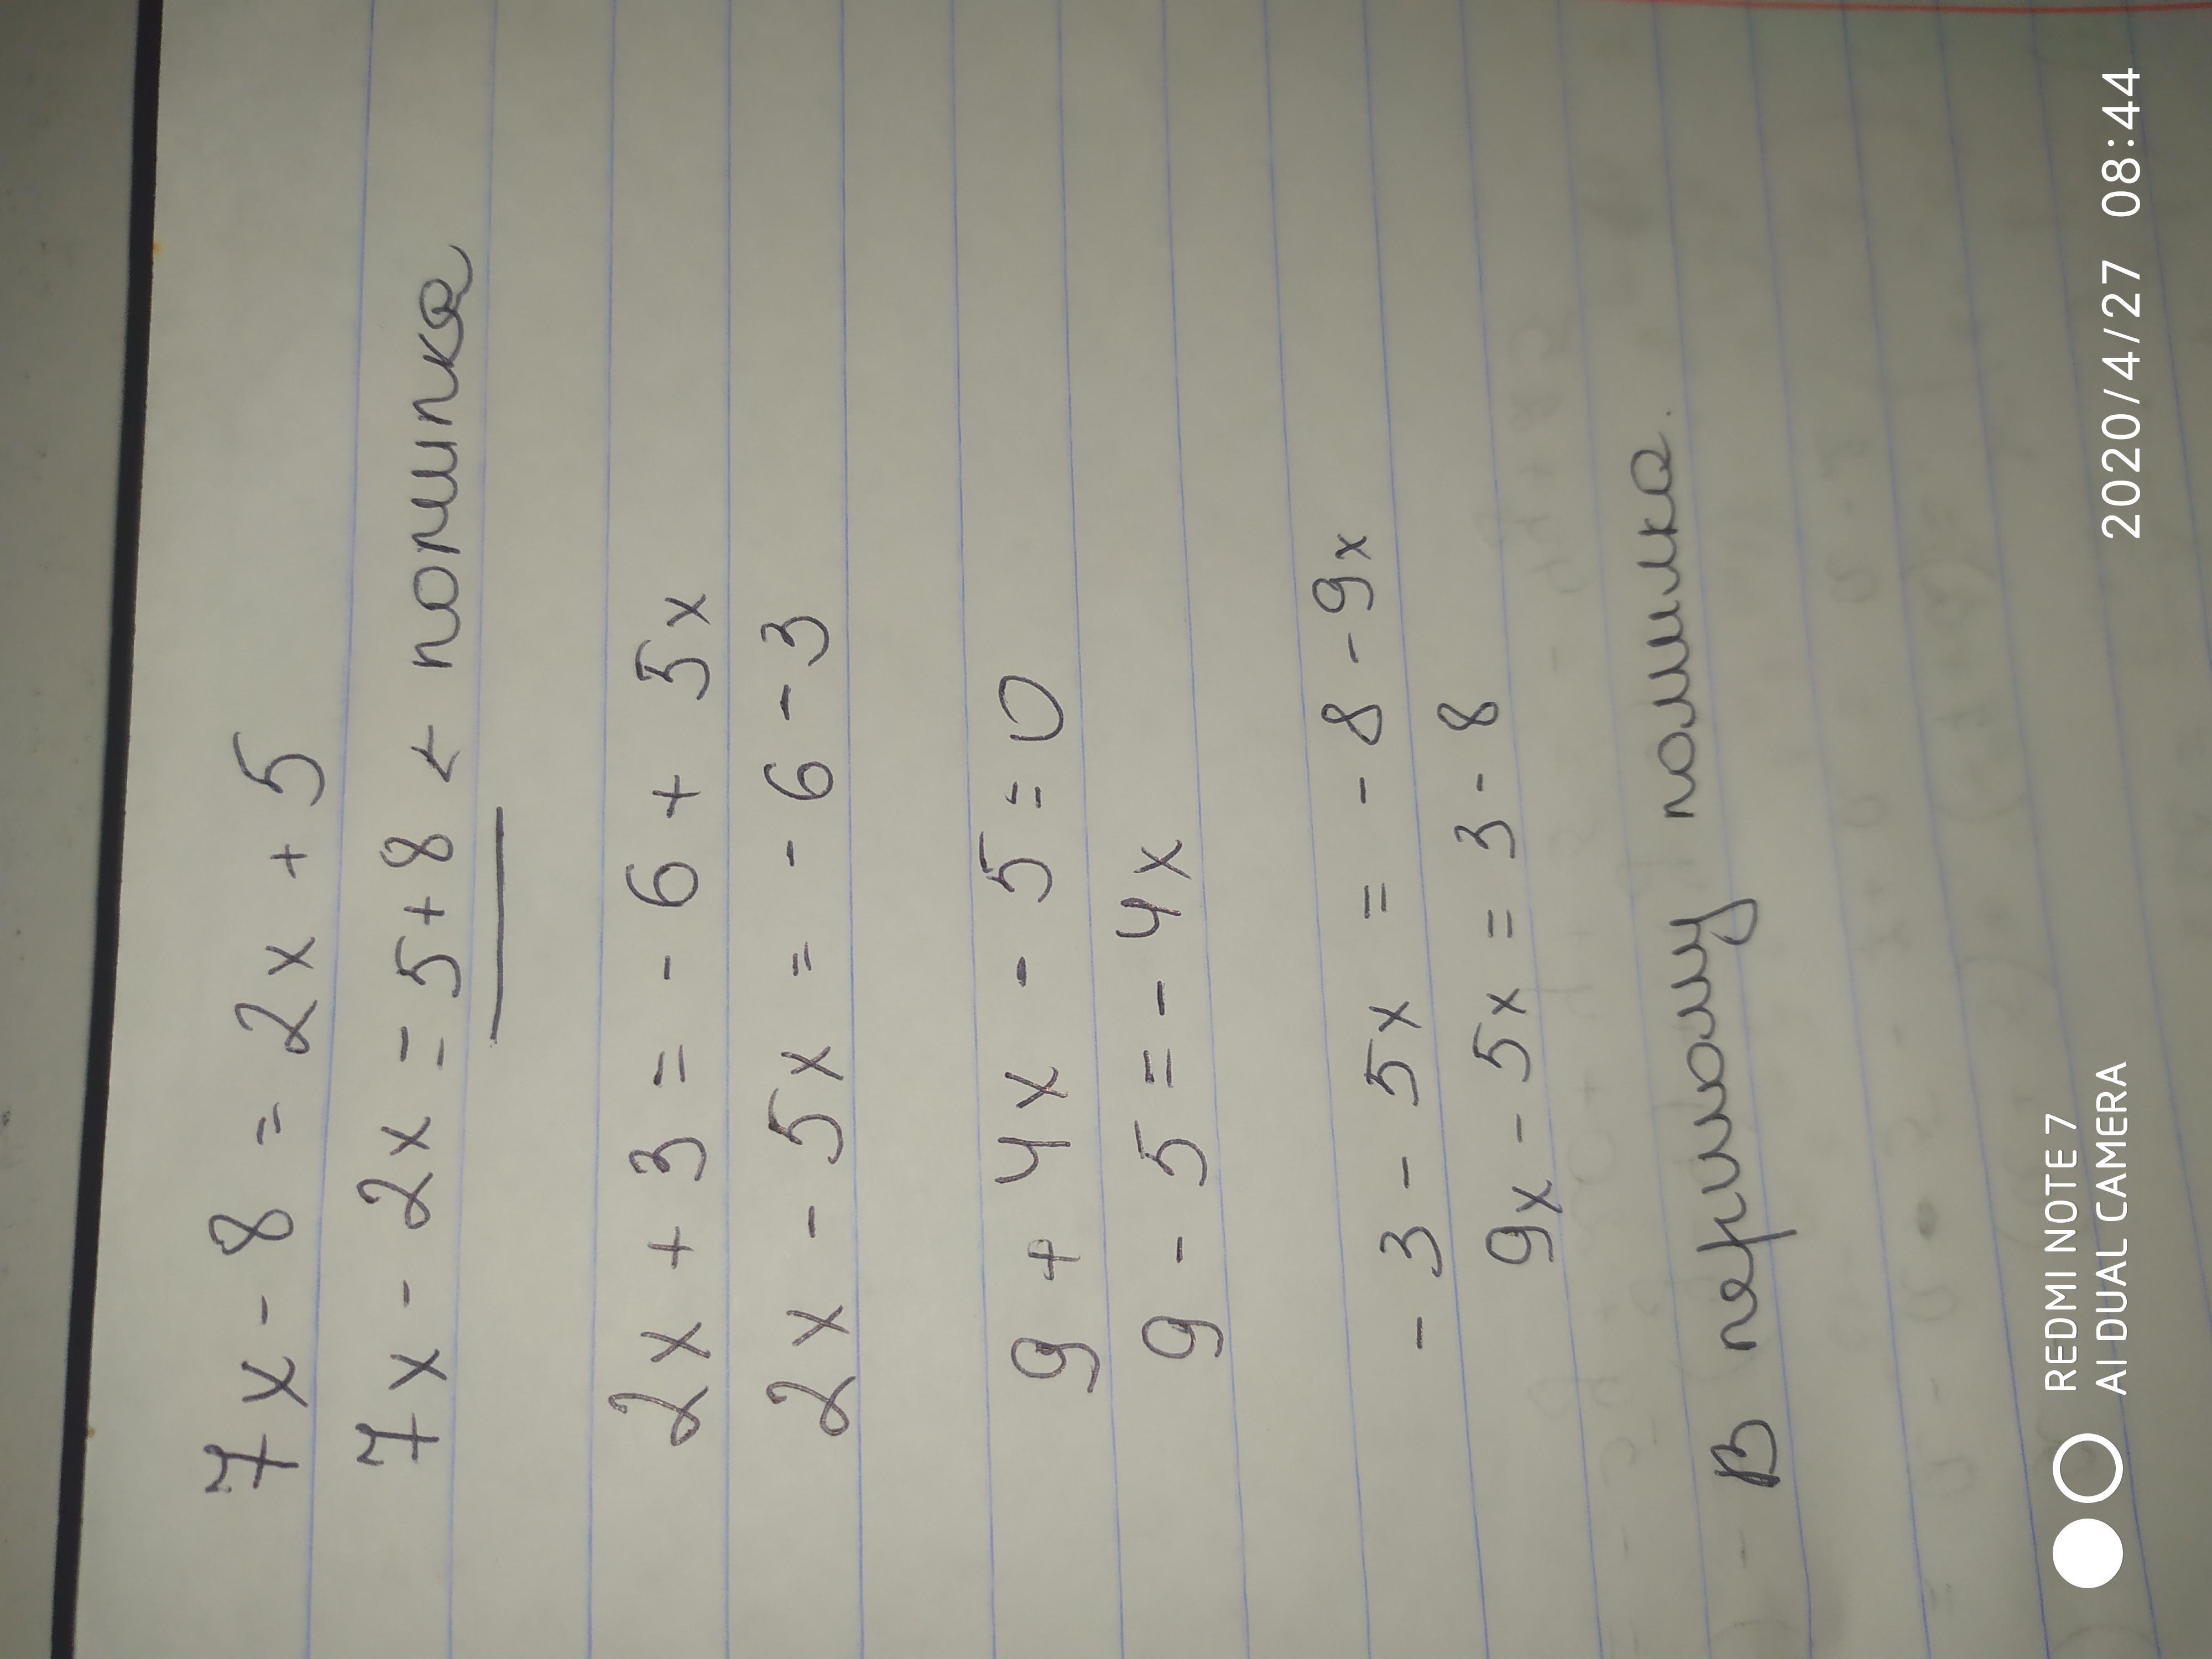 7x - 8 = 2x + 5
7x - 2x = 5+8 ← помилка
2x + 3 = - 6 + 5x
2x - 5x = - 6 - 3
9 + 4x - 5 = 0
9 - 5 = - 4x
- 3 - 5x = - 8 - 9x
9x - 5x = 3 - 8
В першому помилка.
REDMI NOTE 7
AI DUAL CAMERA
2020/4/27 08:44